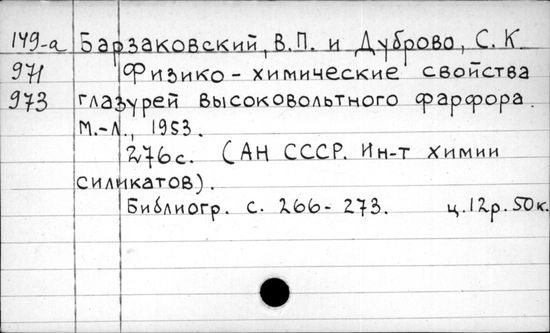 149-а Барзаковский, В.П. и Дуброво, С.К
971 Физико-химические свойства
973 глазурей высоковольтного фарфора.
М.-Л., 1953.
276с. (АН СССР. Ин-т химии
силикатов).
Библиогр. с. 266-273. ц.12р.50к.